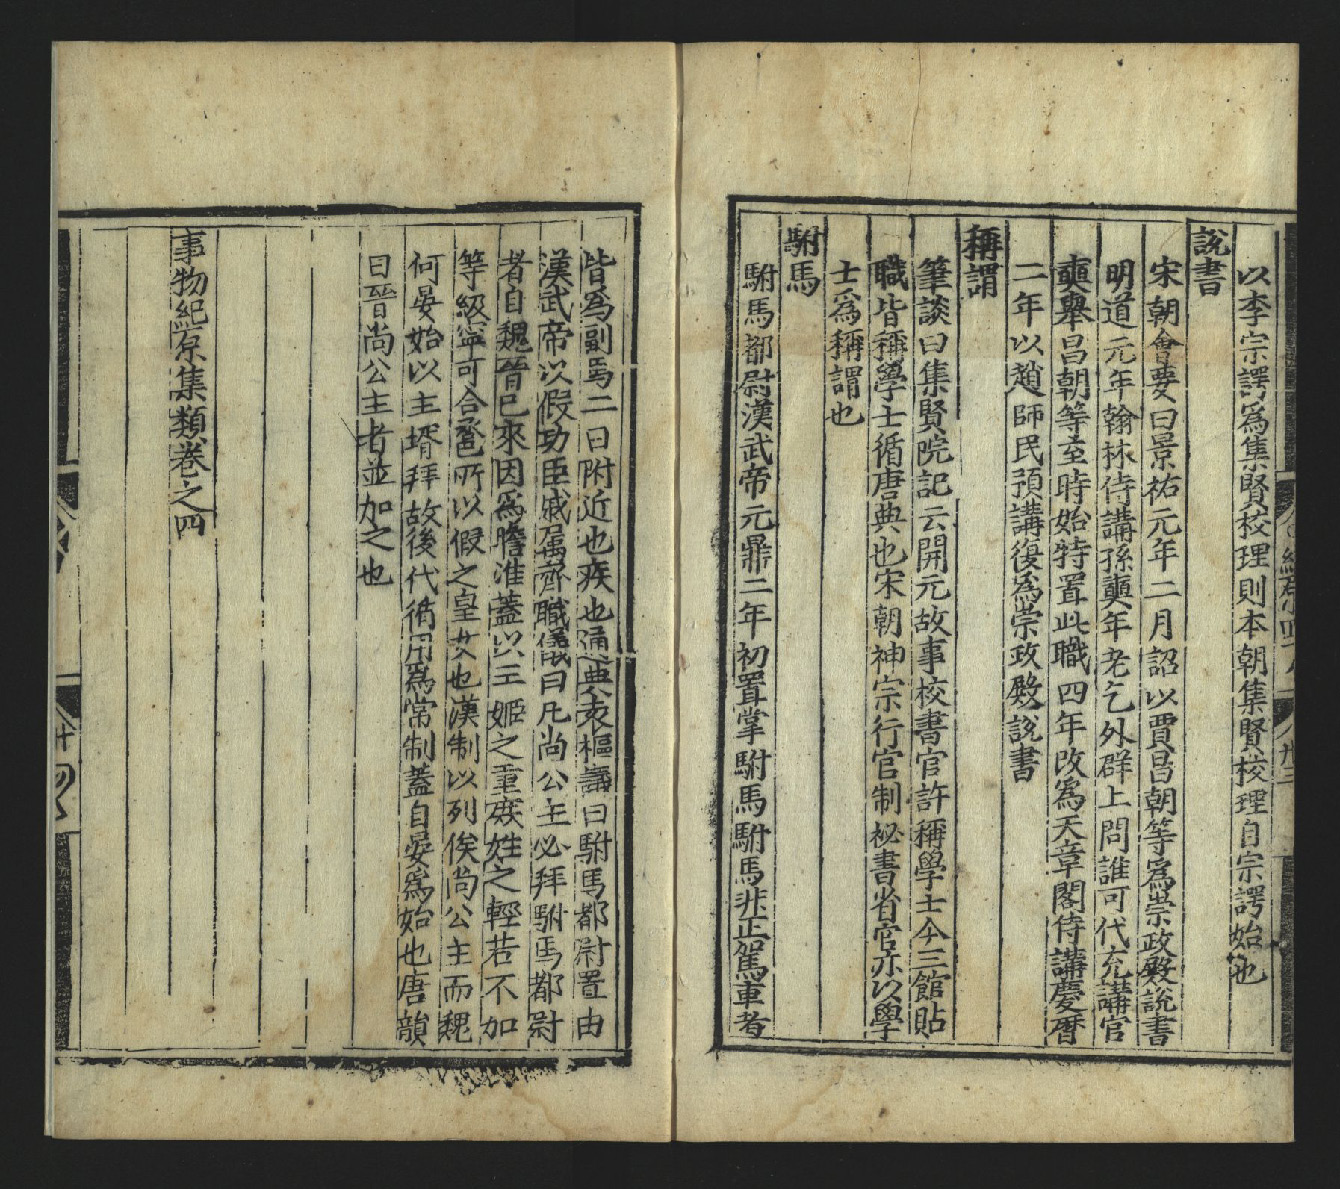 以李宗諤為集賢校理則本朝集賢校理自宗諤始也
說書
宋朝會要曰景祐元年二月詔以賈昌朝等為崇政殿說書
明道元年翰林侍講孫奭年老乞外群上問誰可代充講官
奭舉昌朝等至時始特置此職四年改為天章閣侍講慶曆
二年以趙師民預講復為崇政殿說書
稱謂
筆談曰集賢院記云開元故事校書官許稱學士今三館貼
職皆稱學士循唐典也宋朝神宗行官制祕書省官亦以學
士為稱謂也
駙馬
駙馬都尉漢武帝元鼎二年初置掌駙馬駙馬非正駕車者
皆為副馬二曰附近也疾也通典袁樞議曰駙馬都尉置由
漢武帝以假功臣戚属齊職儀曰凡尚公主必拜駙馬都尉
者自魏晉已來因為瞻准蓋以王姬之重庶姓之輕若不加
等級寧可合巹所以假之皇女也漢制以列侯尚公主而魏
何晏始以主壻拜故後代循用為常制蓋自晏為始也唐韻
曰晉尚公主者並加之也
事物紀原集類卷之四